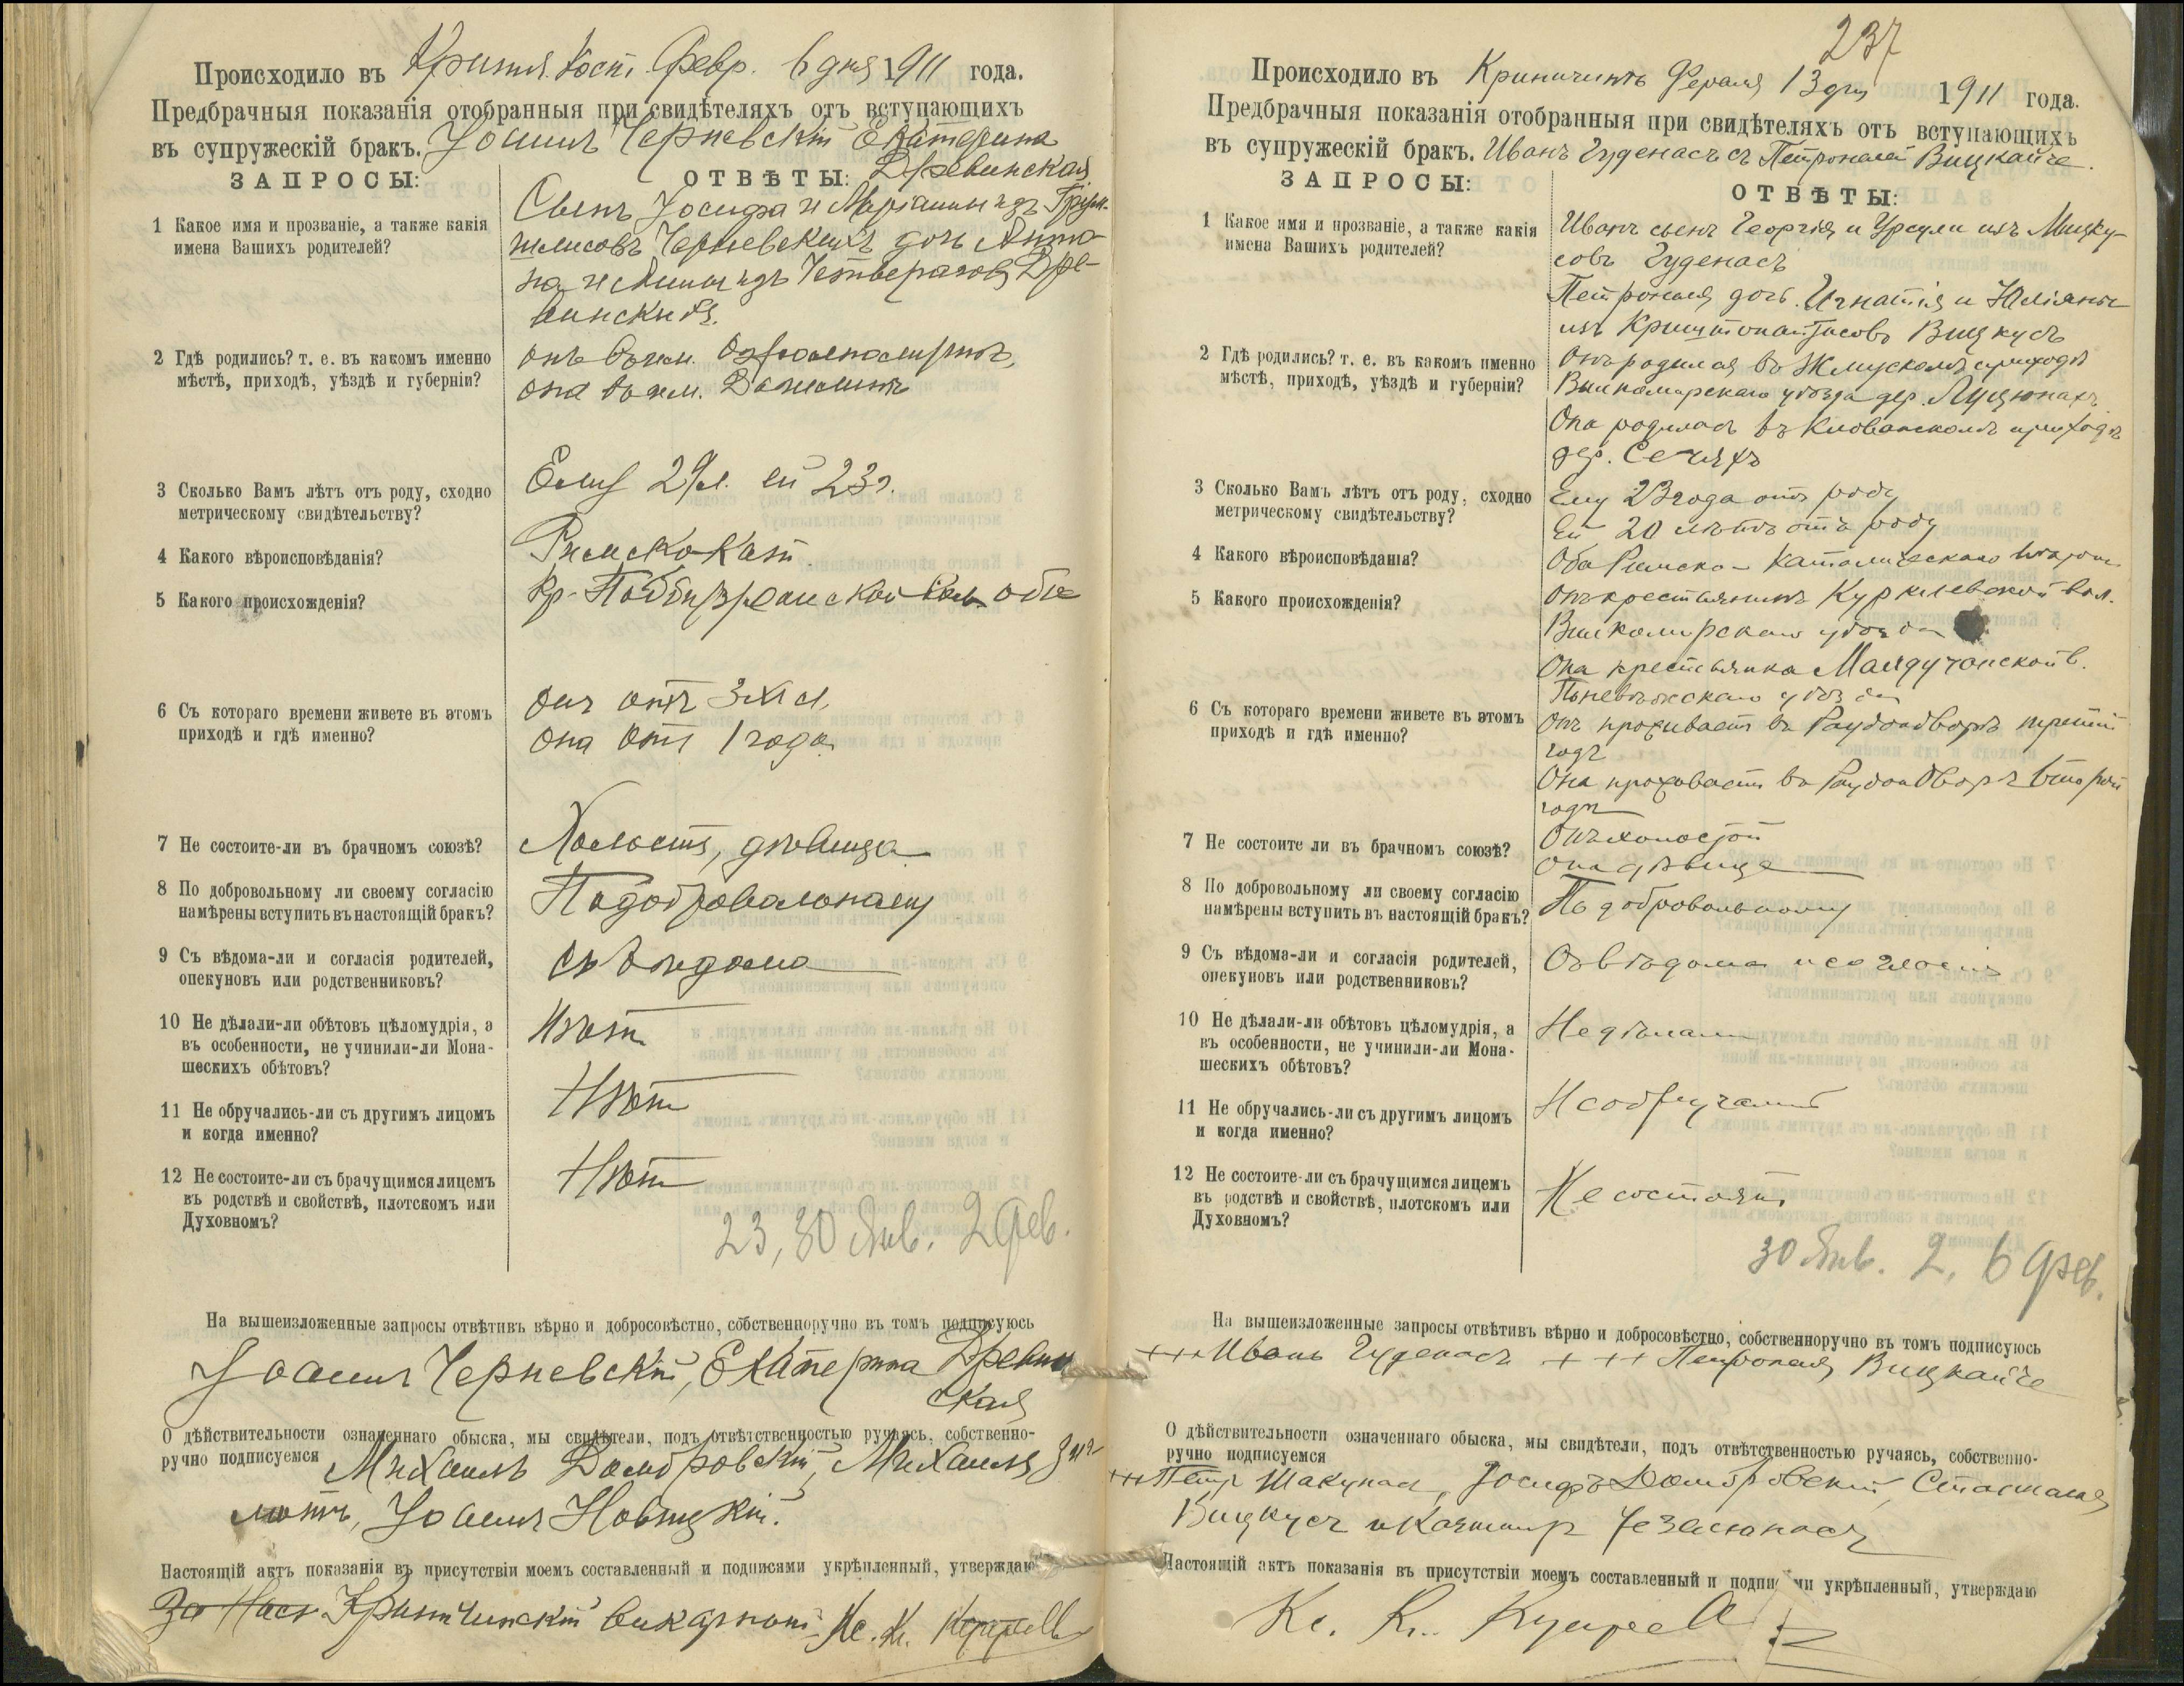 Происходило въ Февр. 6 дня 1911 года.
Предбрачныя показанія отобранныя при свидѣтеляхъ отъ вступающихъ
въ супружескій бракъ. Іоаннъ Черневскій Екатерина
Древинская
ЗАПРОСЫ: ОТВѢТЫ:
1 Какое имя и прозваніе, а также какія
имена Вашихъ родителей?
Сынъ Іосифа и Маріанны изъ
Черневскихъ дочь Анто-
на и Анны изъ Дре-
винскихъ.
2 Гдѣ родились? т. е. въ какомъ именно
мѣстѣ, приходѣ, уѣздѣ и губерніи?
онъ въ им.
она въ им.
3 Сколько Вамъ лѣтъ отъ роду, сходно
метрическому свидѣтельству?
Ему 29 л. ей 23 г.
4 Какого вѣроисповѣданія?
Римско-Кат.
5 Какого происхожденія?
Кр. оба
6 Съ котораго времени живете въ этомъ
приходѣ и гдѣ именно?
Онъ отъ
Она отъ 1 года
7 Не состоите-ли въ брачномъ союзѣ?
Холостъ, дѣвица
8 По добровольному ли своему согласію
намѣрены вступить въ настоящій бракъ?
По добровольному
9 Съ вѣдома-ли и согласія родителей,
опекуновъ или родственниковъ?
Съ вѣдома
10 Не дѣлали-ли обѣтовъ цѣломудрія, а
въ особенности, не учинили-ли Мона-
шескихъ обѣтовъ?
Нѣтъ
11 Не обручались-ли съ другимъ лицомъ
и когда именно?
Нѣтъ
12 Не состоите-ли съ брачущимся лицемъ
въ родствѣ и свойствѣ, плотскомъ или
Духовномъ?
Нѣтъ
23, 30 Янв. 2 Фев.
На вышеизложенные запросы отвѣтивъ вѣрно и добросовѣстно, собственноручно въ томъ подписуюсь
Іоаннъ Черневскій, Екатерина Древин
ская
О дѣйствительности означеннаго обыска, мы свидѣтели, подъ отвѣтственностью ручаясь, собственно-
ручно подписуемся Михаилъ Домбровскій, Михаилъ
Іоаннъ Новицкій.
Настоящій актъ показанія въ присутствіи моемъ составленный и подписями укрѣпленный, утверждаю
викарный Кс. К.
237
Происходило въ Криничинѣ 13 дня 1911 года.
Предбрачныя показанія отобранныя при свидѣтеляхъ отъ вступающихъ
въ супружескій бракъ. Иванъ Гуденасъ съ Петронелей Вицкайте.
ЗАПРОСЫ: ОТВѢТЫ:
1 Какое имя и прозваніе, а также какія
имена Вашихъ родителей?
Иванъ сынъ Георгія и Урсули изъ Мицку-
совъ Гуденасъ
Петронеля дочь Игнатія и Юліяны
изъ Вицкусъ
2 Гдѣ родились? т. е. въ какомъ именно
мѣстѣ, приходѣ, уѣздѣ и губерніи?
Онъ родился въ приходѣ
Вилкомирскаго уѣзда дер.
Она родилась въ приходѣ
дер.
3 Сколько Вамъ лѣтъ отъ роду, сходно
метрическому свидѣтельству?
Ему 23 года отъ роду
Ей 20 лѣтъ отъ роду
4 Какого вѣроисповѣданія?
Оба Римско-Католическаго
5 Какого происхожденія?
Онъ крестьянинъ Курклевской вол.
Вилкомирскаго уѣзда
Она крестьянка
Поневѣжскаго уѣзда
6 Съ котораго времени живете въ этомъ
приходѣ и гдѣ именно?
Онъ проживаетъ въ Раудондворѣ третій
годъ
Она проживаетъ въ Раудондворѣ второй
годъ
7 Не состоите ли въ брачномъ союзѣ?
Онъ холостой
она дѣвица
8 По добровольному ли своему согласію
намѣрены вступить въ настоящій бракъ?
По добровольному
9 Съ вѣдома-ли и согласія родителей,
опекуновъ или родственниковъ?
Съ вѣдома и согласія
10 Не дѣлали-ли обѣтовъ цѣломудрія, а
въ особенности, не учинили-ли Мона-
шескихъ обѣтовъ?
Не дѣлали
11 Не обручались-ли съ другимъ лицомъ
и когда именно?
Не обручались
12 Не состоите-ли съ брачущимся лицемъ
въ родствѣ и свойствѣ, плотскомъ или
Духовномъ?
Не состоятъ
30 Янв. 2, 6 Фев.
На вышеизложенные запросы отвѣтивъ вѣрно и добросовѣстно, собственноручно въ томъ подписуюсь
+++ Иванъ Гуденасъ +++ Петронеля Вицкайте
О дѣйствительности означеннаго обыска, мы свидѣтели, подъ отвѣтственностью ручаясь, собственно-
ручно подписуемся
+++ Петръ Шакунасъ, Іосифъ Домбровскій,
Вицкусъ и
Настоящій актъ показанія въ присутствіи моемъ составленный и подписями укрѣпленный, утверждаю
Кс. К.